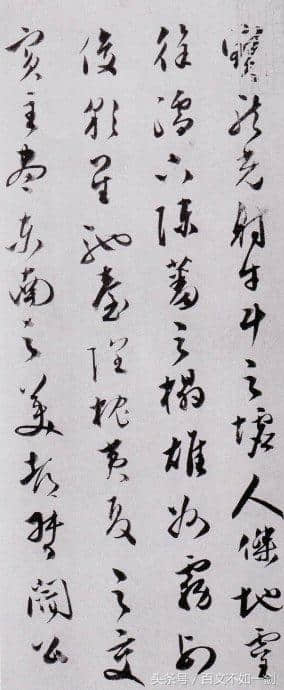 寶龍光射牛斗之墟人傑地靈
徐孺下陳蕃之榻雄州霧列
俊彩星馳臺隍枕夷夏之交
賓主盡東南之美都督閻公
头条号/百文不如一剑